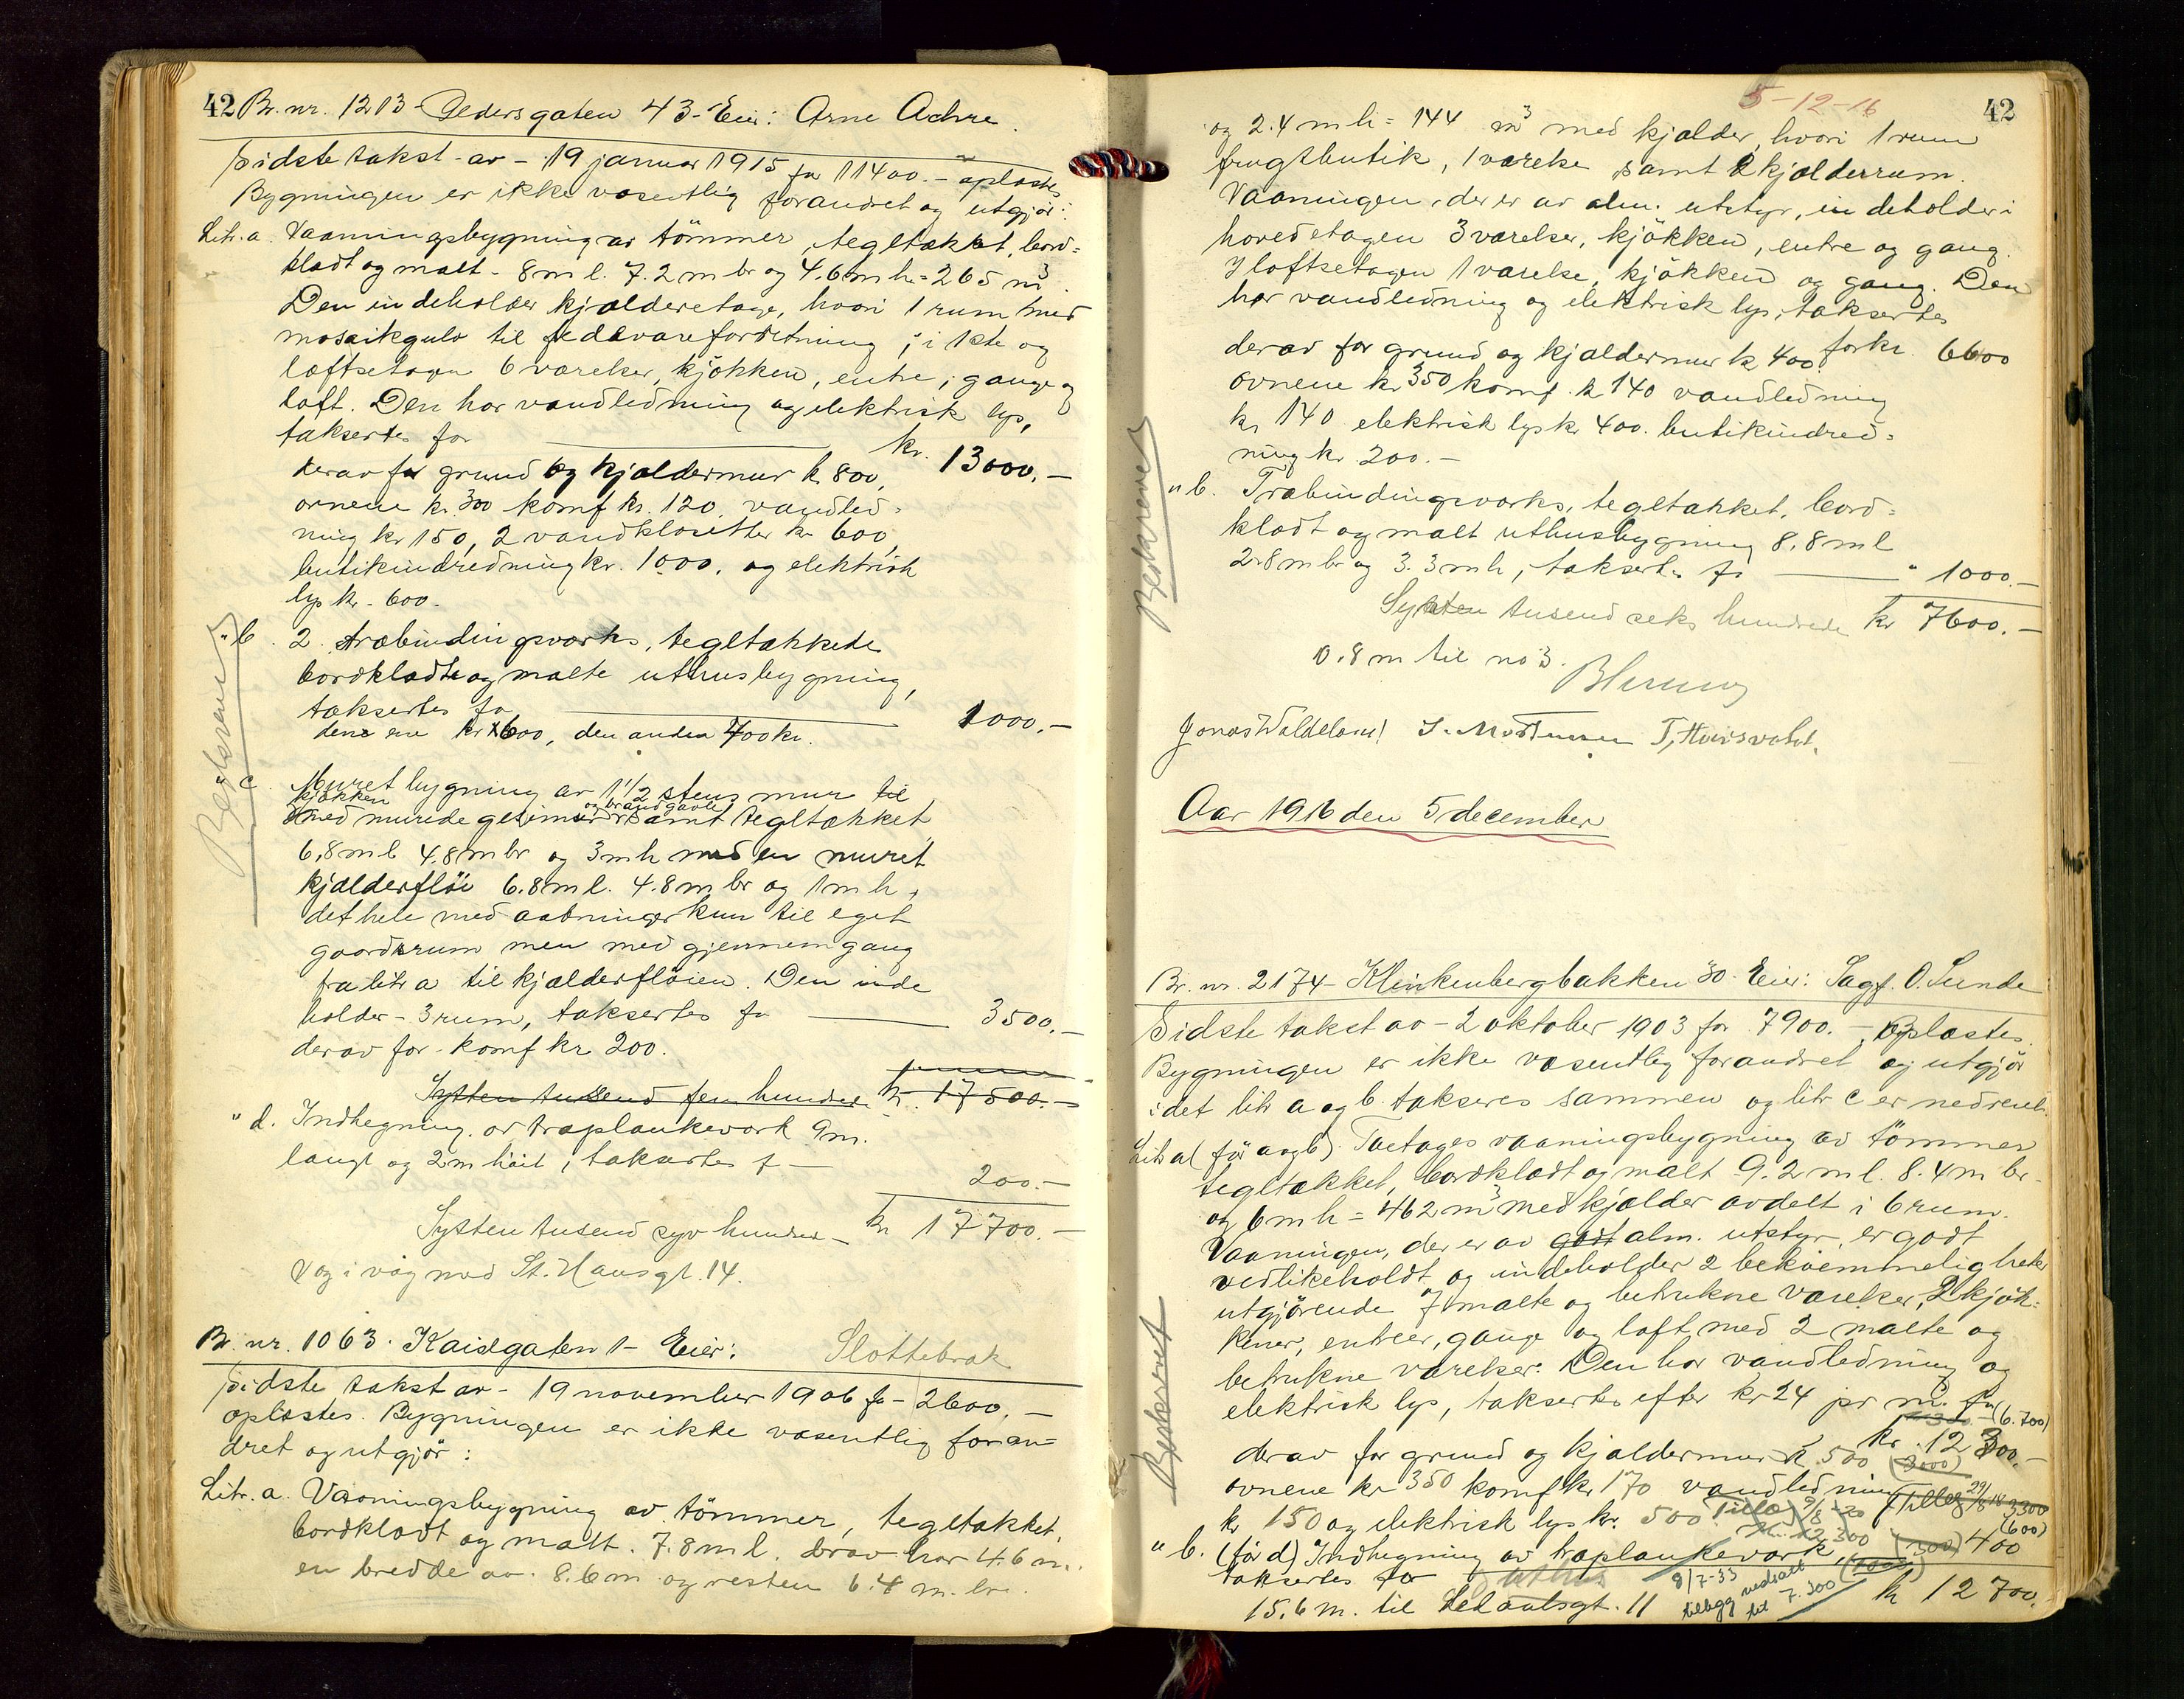 42 Br. nr. 1213 Pedersgaten 43 - Eier: Arne Achre.
Sidste takst av - 19 januar 1915 for 11400.- oplæstes
Bygningen er ikke væsentlig forandret og utgjør:
Litr. a. Vaaningsbygning av tømmer, tegltækket, bord=
klædt og malt - 8 m l. 7.2 m br og 4.6 m h = 265 m³.
Den indeholder kjælderetage, hvori 1 rum med
mosaikgulv til fedevareforretning; i 1ste og
loftsetagen 6 værelser, kjøkken, entre, gange og
loft. Den har vandledning og elektrisk lys,
taksertes for kr. 13000.-
derav for grund og kjældermur k. 800,
ovnene kr. 300 komf kr. 120, vandled=
ning kr 150, 2 vandklosetter kr 600,
butikindredning kr. 1000, og elektrisk
lys kr. 600.
" b. 2 træbindingsværks, tegltækkede
bordklædte og malte uthusbygning,
taksertes for 1000.-
den ene kr 600, den anden 400 kr.
Beskrevet
" c. Muret bygning av 1 1/2 stens mur til
kjøkken
med murede gesimser og brandgavle samt tegltækket
6,8 m l 4.8 m br og 3 m h med en muret
kjælderfløi 6.8 m l. 4.8 m br og 1 m h,
det hele med aabninger kun til eget
gaardsrum men med gjennemgang
fra litr a til kjælderfløien. Den inde
holder - 3 rum, taksertes for 3500.-
derav for komf kr 200.
Sytten tusend fem hundre kr. 17500.-
" d. Indhegning av træplankeværk 9 m.
langt og 2 m høit, taksertes f - 200.-
Sytten tusend syv hundre - kr 17700.-
Væg i væg med St. Hansgt. 14.
Br. nr. 1063. Kaisgaten 1 - Eier: Slottebrak
Sidste takst av - 19 november 1906 for - 2600.-
oplæstes. Bygningen er ikke væsentlig foran=
dret og utgjør:
Litr. a. Vaaningsbygning av tømmer, tegltækket,
bordklædt og malt. 7.8 m l. derav har 4.6 m.
en bredde av 8.6 m og resten 6.4 m. br.
5-12-16
42
og 2.4 m h = 144 m³ med kjælder, hvori 1 rum
frugtbutik, 1 værelse samt 2 kjælderrum.
Vaaningen, der er av alm. utstyr, indeholder i
hovedetagen 3 værelser, kjøkken, entre og gang.
I loftsetagen 1 værelse, kjøkken og gang. Den
har vandledning og elektrisk lys, taksertes
for kr. 6600
derav for grund og kjældermur k 400
ovnene kr 350 komf. k 140 vandledning
kr 140 elektrisk lys kr 400. butikindred=
ning kr 200.-
Beskrevet
" b. Træbindingsværks, tegltækket, bord=
klædt og malt uthusbygning 8.8 m l
2.8 m br og 3.3 m h, taksertes for " 1000.-
Syv tusend seks hundrede kr 7600.-
0.8 m til no 3.
Jonas Waldeland S. Mortensen
Aar 1916 den 5 december
Br. nr. 2174 - Klinkenbergbakken 30 - Eier: Sagf. O. Sunde
Sidste takst av - 2 oktober 1903 for 7900.- oplæstes.
Bygningen er ikke væsentlig forandret og utgjør
idet litr a og b takseres sammen og litr c er nedrevet.
Litr a (før a og b). Toetages vaaningsbygning av tømmer
tegltækket, bordklædt og malt 9.2 m l. 8.4 m br.
og 6 m h = 462 m³ med kjælder avdelt i 6 rum.
Vaaningen, der er av godt alm. utstyr, er godt
vedlikeholdt og indeholder 2 bekvemmeligheter
utgjørende 7 malte og betrukne værelser, 2 kjøk=
kener, entreer, gange og loft med 2 malte og
betrukne værelser. Den har vandledning og
elektrisk lys, taksertes efter kr 24 pr m³ for
(6.700)
kr. 12300.-
derav for grund og kjældermur k 500 (3000)
ovnene kr 350 komf kr 170 vandledning (Tillæg 29/8 18 3300
kr 150 og elektrisk lys kr. 500. Tillæg 9/8-20
kr. 12300 (600)
Beskrevet
" b. (før d) Indhegning av træplankeværk, (300) 400
taksertes for uthus
15.6 m. til Hetlandsgt. 11 kr 12700.
8/7-33
tillegg nedsatt
til 7.300